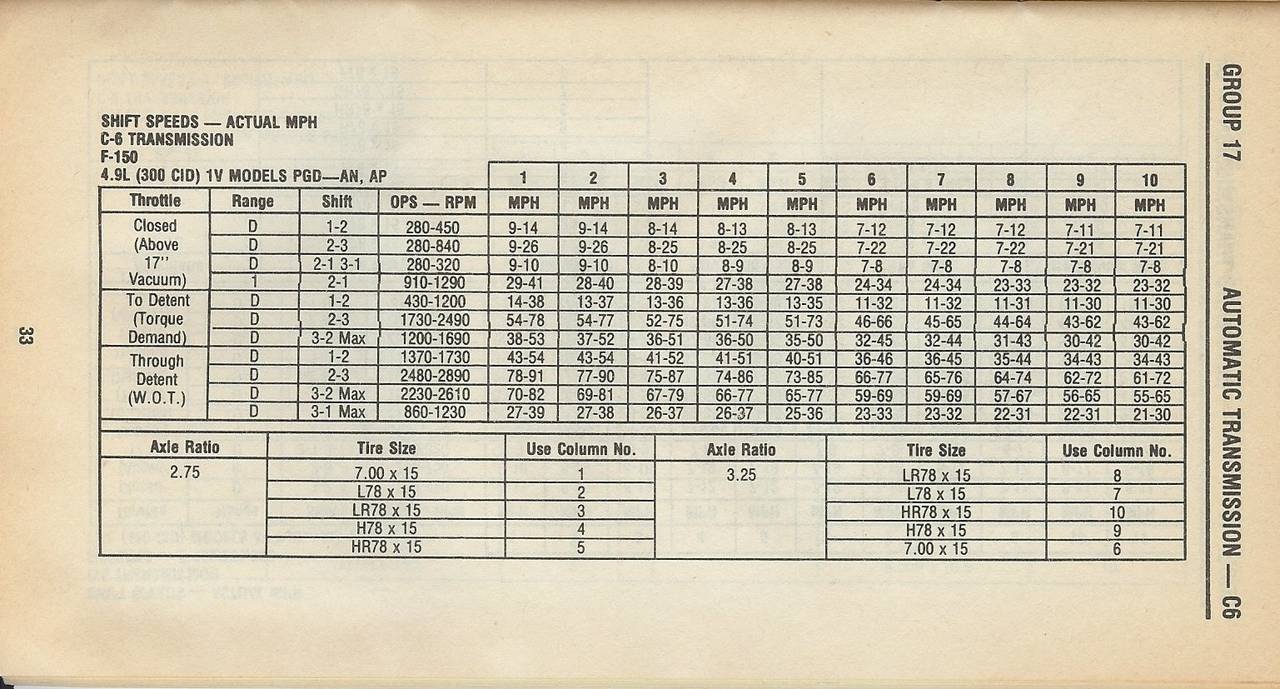 SHIFT SPEEDS — ACTUAL MPH
C-6 TRANSMISSION
F-150
4.9L (300 CID) 1V MODELS PGD—AN, AP 1 2 3 4 5 6 7 8 9 10
Throttle Range Shift OPS — RPM MPH MPH MPH MPH MPH MPH MPH MPH MPH MPH
Closed D 1-2 280-450 9-14 9-14 8-14 8-13 8-13 7-12 7-12 7-12 7-11 7-11
(Above D 2-3 280-840 9-26 9-26 8-25 8-25 8-25 7-22 7-22 7-22 7-21 7-21
17" D 2-1 3-1 280-320 9-10 9-10 8-10 8-9 8-9 7-8 7-8 7-8 7-8 7-8
Vacuum) 1 2-1 910-1290 29-41 28-40 28-39 27-38 27-38 24-34 24-34 23-33 23-32 23-32
To Detent D 1-2 430-1200 14-38 13-37 13-36 13-36 13-35 11-32 11-32 11-31 11-30 11-30
(Torque D 2-3 1730-2490 54-78 54-77 52-75 51-74 51-73 46-66 45-65 44-64 43-62 43-62
Demand) D 3-2 Max 1200-1690 38-53 37-52 36-51 36-50 35-50 32-45 32-44 31-43 30-42 30-42
Through D 1-2 1370-1730 43-54 43-54 41-52 41-51 40-51 36-46 36-45 35-44 34-43 34-43
Detent D 2-3 2480-2890 78-91 77-90 75-87 74-86 73-85 66-77 65-76 64-74 62-72 61-72
(W.O.T.) D 3-2 Max 2230-2610 70-82 69-81 67-79 66-77 65-77 59-69 59-69 57-67 56-65 55-65
D 3-1 Max 860-1230 27-39 27-38 26-37 26-37 25-36 23-33 23-32 22-31 22-31 21-30
Axle Ratio Tire Size Use Column No. Axle Ratio Tire Size Use Column No.
2.75 7.00 x 15 1 3.25 LR78 x 15 8
L78 x 15 2 L78 x 15 7
LR78 x 15 3 HR78 x 15 10
H78 x 15 4 H78 x 15 9
HR78 x 15 5 7.00 x 15 6
GROUP 17 AUTOMATIC TRANSMISSION — C6
33